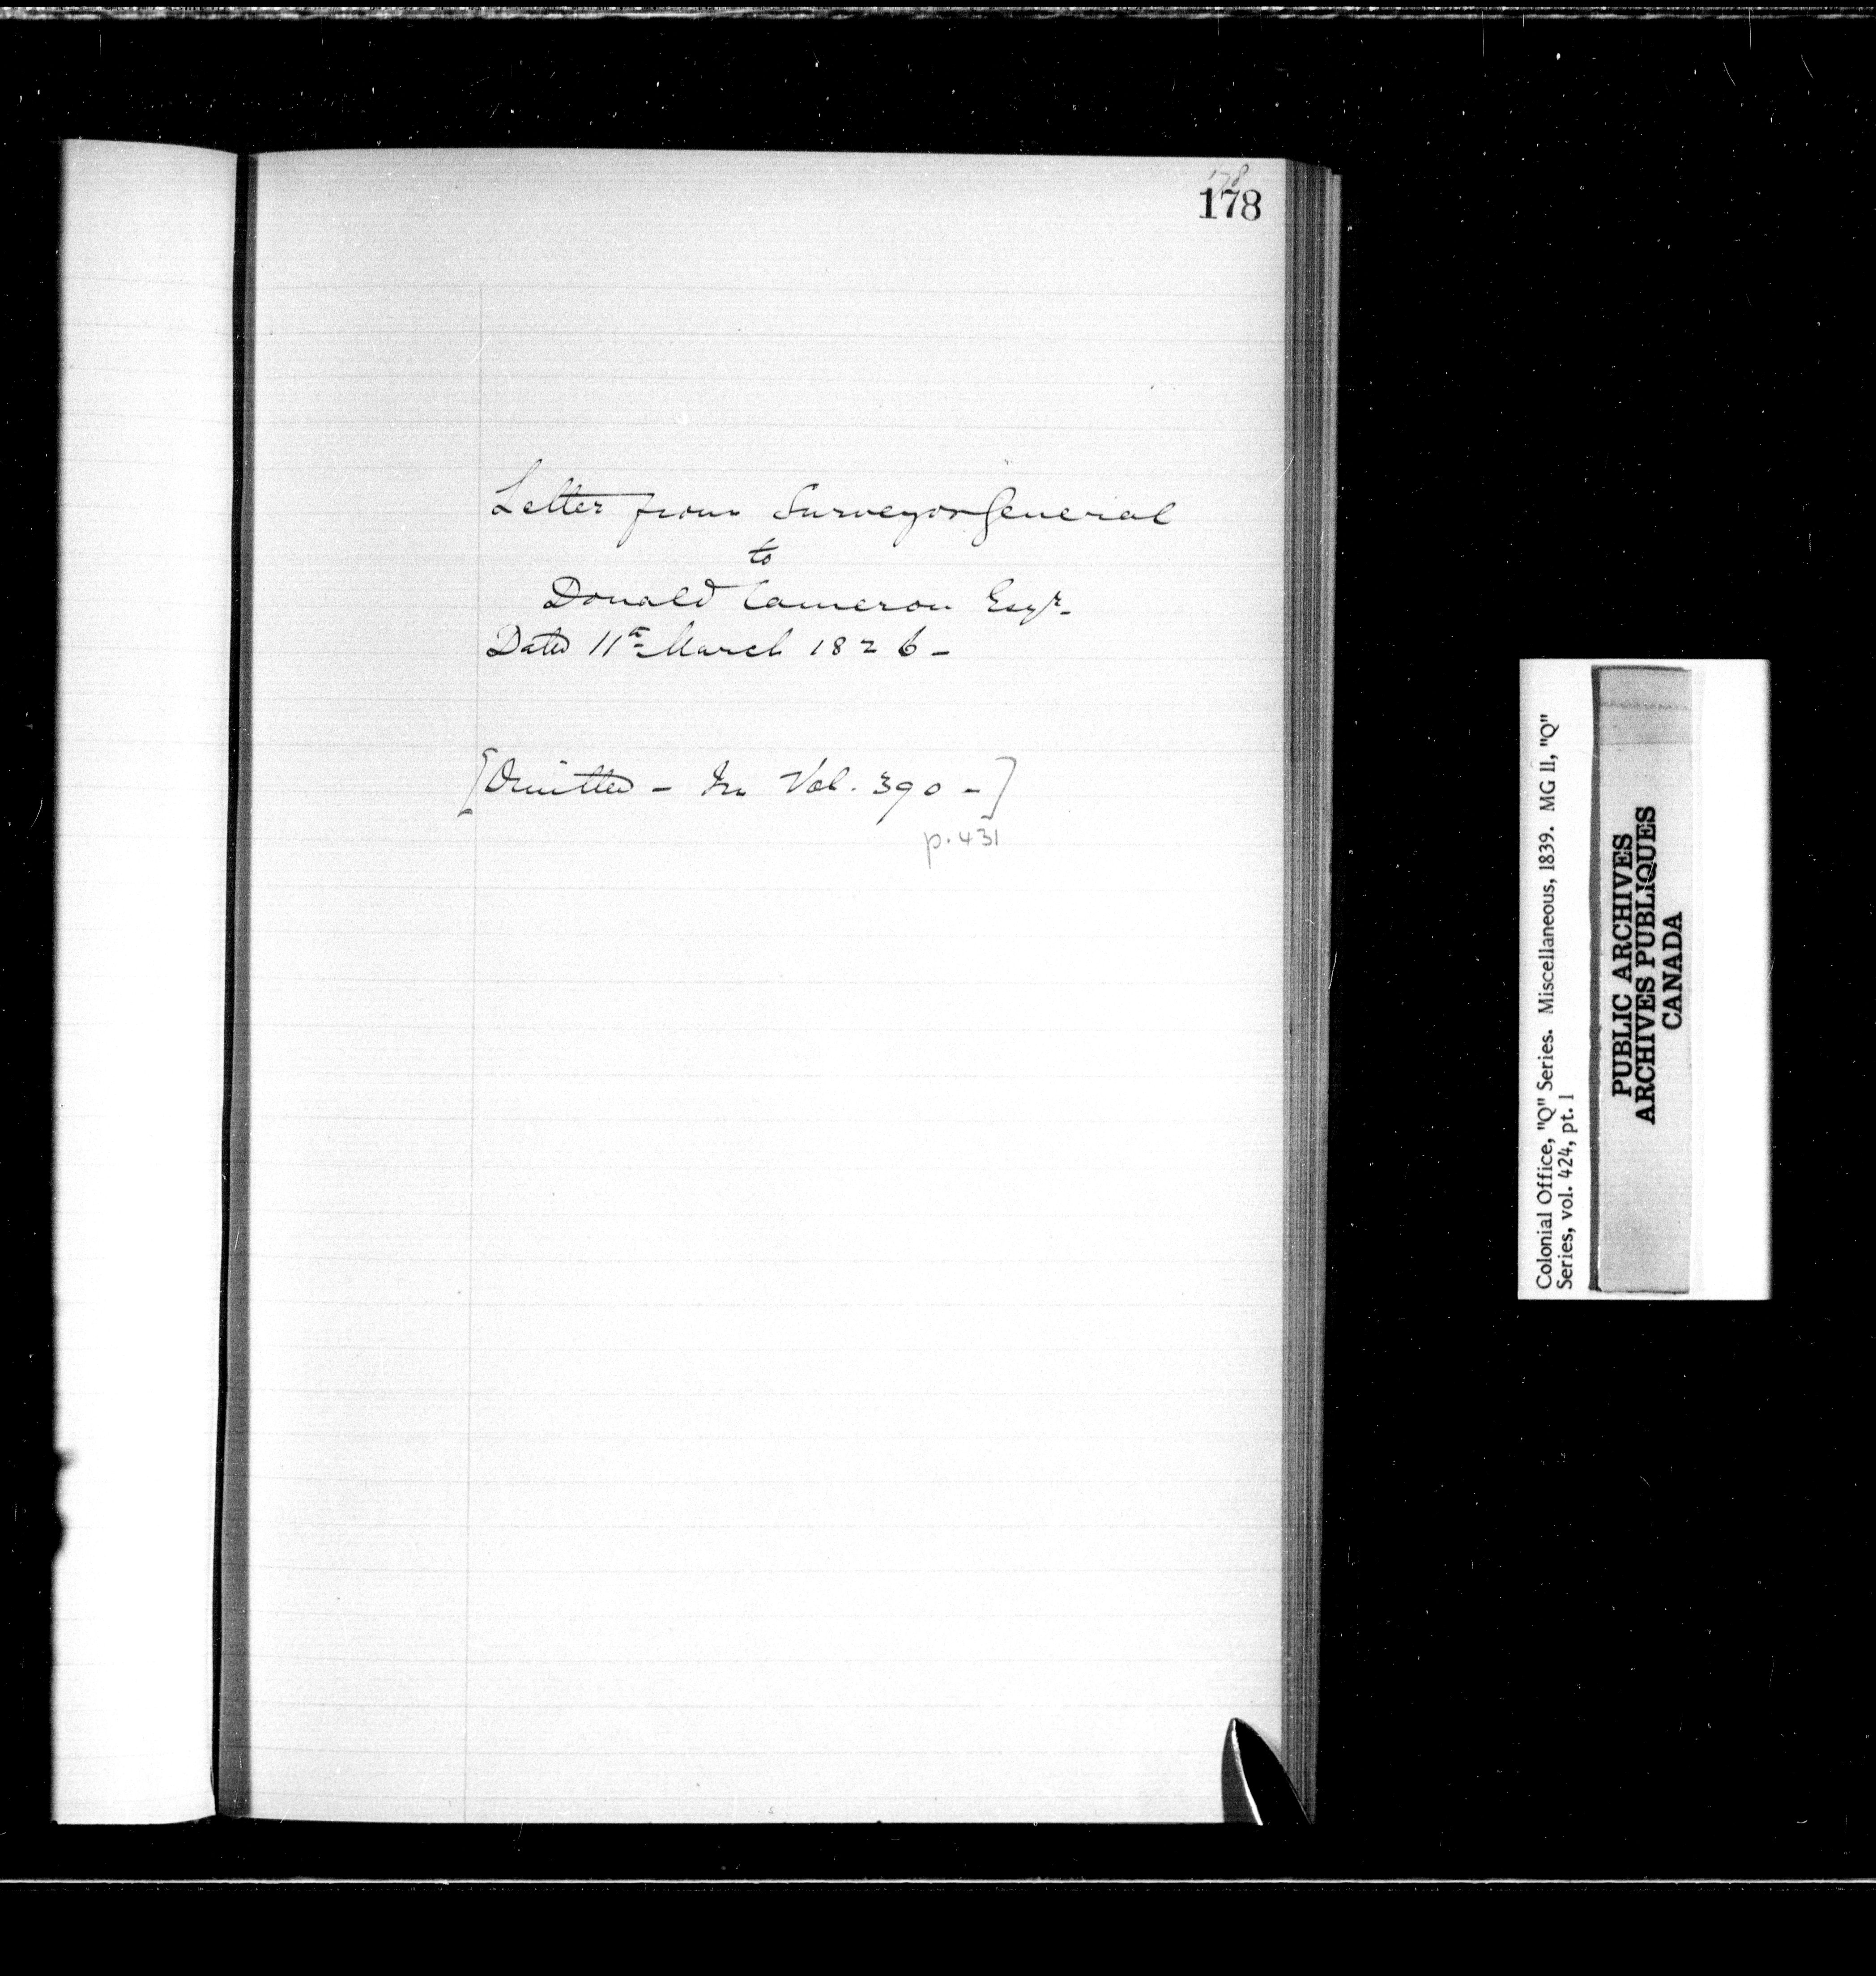 178
178
Letter from Surveyor General
to
Donald Cameron Esqr.
Dated 11th March 1826 -
[Omitted - In Vol. 390 -]
p. 431
Colonial Office, "Q" Series. Miscellaneous, 1839. MG 11, "Q"
Series, vol. 424, pt. 1
PUBLIC ARCHIVES
ARCHIVES PUBLIQUES
CANADA